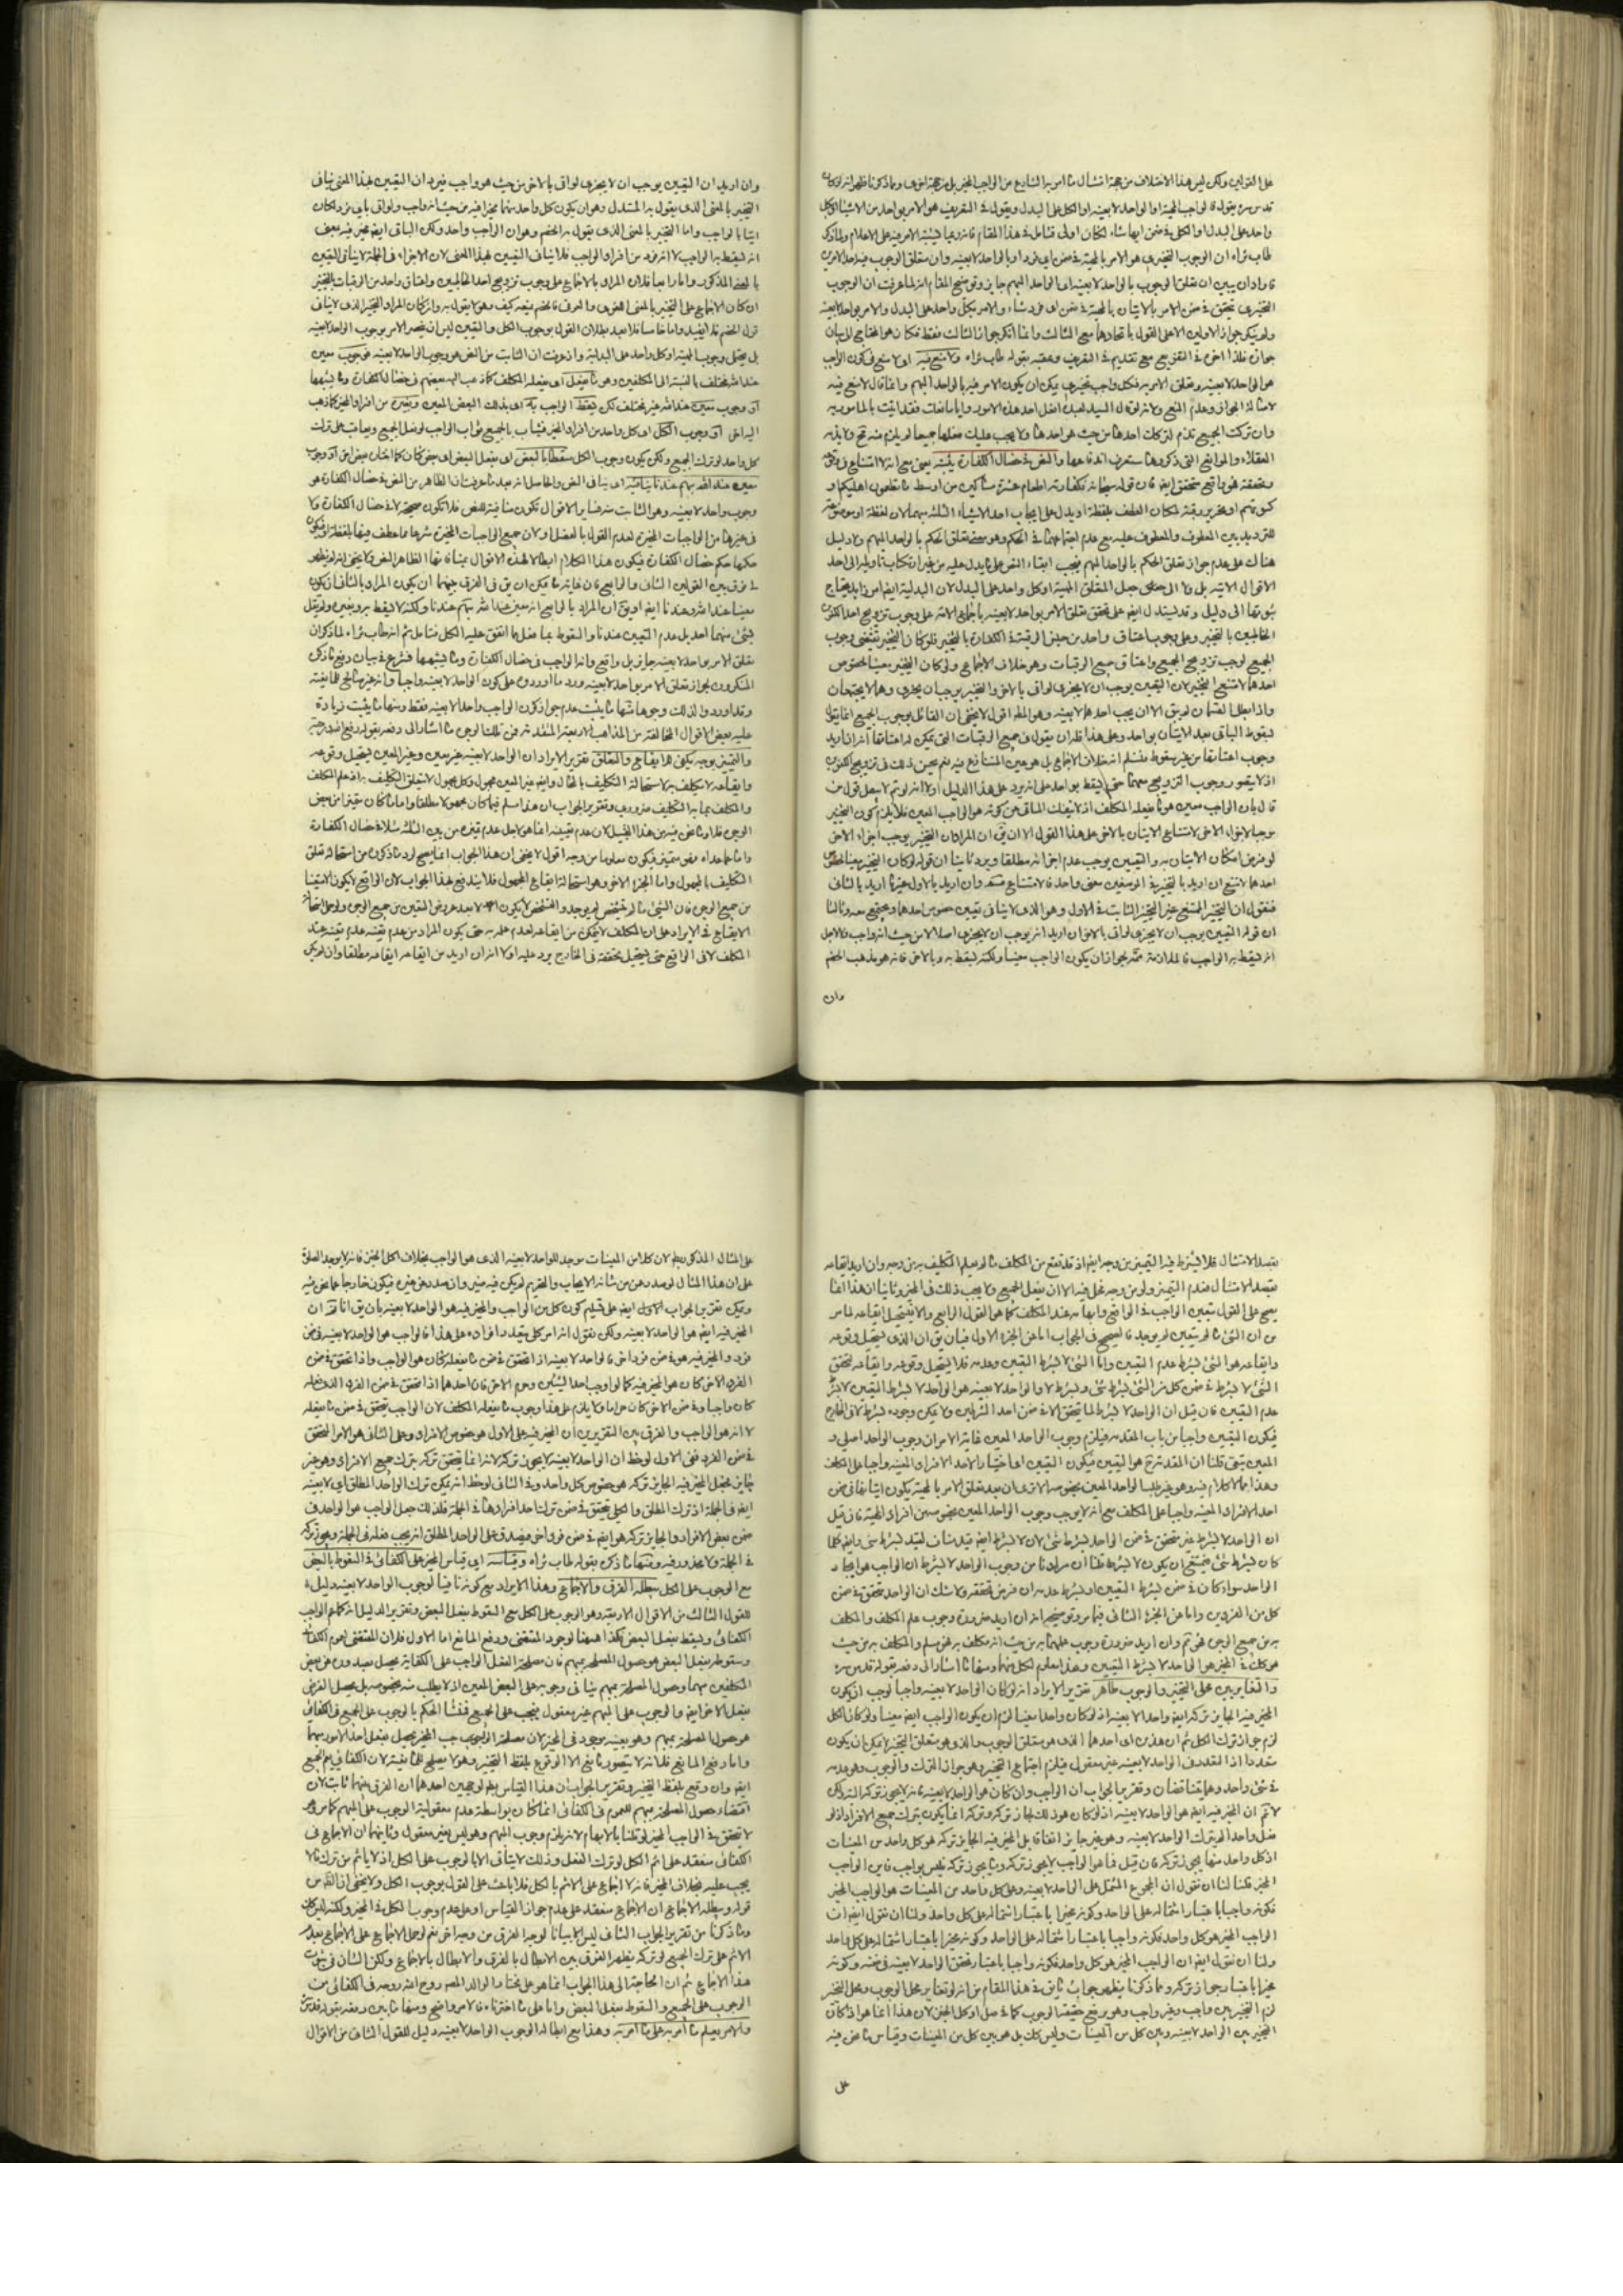 على القولين ولكن ليس هذا الاختلاف من جهة امتثال ما امر به الشارع من الواجب المخير بل من جهة اخرى وما ذكرنا ظهر انه لو كان
قدس سره يقول فالواجب المهية او الواحد لا بعينه او الكل على البدل ويقول في التعريف هو الامر بواحد من الاشياء او بكل
واحد على البدل او الكلي في ضمن ايها شاء لكان اولى فتأمل في هذا المقام
طاب ثراه ان الوجوب التخييري هو الامر بالمهية في ضمن اي فرد او بالواحد لا بعينه وان متعلق الوجوب فيه احد الامرين
فاراد ان يبين ان تعلق الوجوب بالواحد لا بعينه اي الواحد المبهم جايز وتوضيح المقام انه لما عرفت ان الوجوب
التخييري يتحقق في ضمن الامر بالاتيان بالمهية في ضمن اي فرد شاء والامر بكل واحد على البدل والامر بواحد لا بعينه
ولم ينكر جواز الاولين الا على القول باتحادهما مع الثالث وانما انكر جواز الثالث فقط فكان هو المحتاج الى بيان
جوازه فلذا اخره في التفريع مع تقديمه في التعريف وعقبه بقوله طاب ثراه ولا منع فيه اي لا منع في كون الواجب
هو الواحد لا بعينه وتعلق الامر به فكل واجب تخييري يمكن ان يكون الامر فيه بالواحد المبهم وانما قال لا منع فيه
لاصالة الجواز وعدم المنع ولانه لو قال السيد لعبده افعل احد هذه الامور وايا ما فعلت فقد اتيت بالمامور به
وان تركت الجميع تذم لتركك احدها من حيث هو احدها ولا يجب عليك فعلها جميعا لم يلزم منه قبح ولا يذمه
العقلاء والموانع التي ذكروها ستعرف اندفاعها والنص في خصال الكفارة يثبته يعني مع انه لا امتناع في وقوعه
وتحققه هو واقع متحقق ايضا فان قوله سبحانه فكفارته اطعام عشرة مساكين من اوسط ما تطعمون اهليكم او
كسوتهم او تحرير رقبة لمكان العطف بلفظة او يدل على ايجاب احد الاشياء الثلثة مبهما لان لفظة او موضوعة
للترديد بين المعطوف والمعطوف عليه مع عدم اجتماعهما في الحكم وهو معنى تعلق الحكم بالواحد المبهم ولا دليل
هناك على عدم جواز تعلق الحكم بالواحد المبهم فيجب ابقاء النص على ما يدل عليه من غير ارتكاب تاويله الى احد
الاقوال الاتية
ثبوتها الى دليل وقد يستدل ايضا على تحقق تعلق الامر بواحد لا بعينه باجماع الامة على وجوب تزويج احد الكفوين
الخاطبين بالتخيير وعلى وجوب اعتاق واحد من جنس الرقبة في الكفارة بالتخيير فلو كان التخيير يقتضي وجوب
الجميع لوجب تزويج الجميع واعتاق جميع الرقبات وهو خلاف الاجماع ولو كان التخيير معينا لخصوص
احدها لامتنع التخيير لان التعيين يوجب ان لا يجزي لو اتى بالاخر والتخيير يوجب ان يجزي وهما لا يجتمعان
واذا بطل القسمان لم يبق الا ان يجب احدها لا بعينه وهو المط اقول لا يخفى ان القائل بوجوب الجميع انما يقول
بسقوط الباقي بعد الاتيان بواحد وعلى هذا فله ان يقول في جميع الرقبات التي يمكن له اعتاقها انه ان اريد
وجوب اعتاقها من غير سقوط فنسلم انه خلاف الاجماع بل هو عين المتنازع فيه نعم يحسن ذلك في تزويج الكفوين
اذ لا يتصور وجوب التزويج منهما حتى يسقط بواحد على انه يرد على هذا الدليل اولا انه لو تم لا يبطل قول من
قال بان الواجب معين هو ما يفعله المكلف
موجبا لاجزاء الاخر لامتناع الاتيان بالاخر على هذا القول الا ان يق ان المراد ان التخيير يوجب اجزاء الاخر
لو فرض امكان الاتيان به والتعيين يوجب عدم اجزائه مطلقا ويرد ثانيا ان قوله لو كان التخيير معينا لخصوص
احدها لامتنع ان اريد بالتخيير في الموضعين معنى واحد فالامتناع مسلم وان اريد بالاول غير ما اريد بالثاني
فنقول ان التخيير الممتنع غير التخيير الثابت في الاول وهو الذي لا ينافي تعيين خصوص احدها ويجتمع معه وثالثا
ان قوله التعيين يوجب ان لا يجزي لو اتى بالاخر ان اريد انه يوجب ان لا يجزي اصلا لا من حيث انه واجب ولا لاجل
انه يسقط به الواجب فالملازمة ممنوعة لجواز ان يكون الواجب معينا ولكنه يسقط به وبالاخر فانه هو مذهب الخصم
وان
وان اريد ان التعيين يوجب ان لا يجزي لو اتى بالاخر من حيث هو واجب فيرد ان التعيين بهذا المعنى ينافي
التخيير بالمعنى الذي يقول به المستدل وهو ان يكون كل واحد منهما مخيرا فيه من حيث انه واجب ولو اتى باي فرد لكان
اتيا بالواجب واما التخيير بالمعنى الذي يقول به الخصم وهو ان الواجب واحد ولكن الباقي ايضا مخير فيه بمعنى
انه يسقط به الواجب لا انه فرد من افراد الواجب فلا ينافي التعيين بهذا المعنى لان الاجزاء في الجملة لا ينافي التعيين
بالمعنى المذكور واما رابعا فلان المراد بالاجماع على وجوب تزويج احد الخاطبين واعتاق واحد من الرقبات بالتخيير
ان كان الاجماع على التخيير بالمعنى اللغوي والعرفي فالخصم يمنعه كيف وهو لا يقول به وان كان المراد التخيير الذي لا ينافي
قول الخصم فلا يفيد واما خامسا فلا بعد بطلان القول بوجوب الكل والتعيين ليس ان ينحصر الامر بوجوب الواحد لا بعينه
بل يحتمل وجوب المهية او كل واحد على البدلية واذ عرفت ان الثابت من النص هو وجوب الواحد لا بعينه فوجوب معين
عند الله مختلف بالنسبة الى المكلفين وهو ما يفعل اي يفعله المكلف كما ذهب اليه بعضهم في خصال الكفارة وما يشبهها
او وجوب معين عند الله غير مختلف لكن يسقط الواجب به اي بذلك البعض المعين وبغيره من افراد المخير كما ذهب
اليه اخر او وجوب الكل اي كل واحد من افراد المخير فيثاب بالجميع ثواب الواجب لو فعل الجميع ويعاقب على ترك
كل واحد لو ترك الجميع ولكن يكون وجوب الكل مسقطا بالبعض اي بفعل البعض
معين عند الله مبهم عندنا ينافيه اي ينافي النص والحاصل انه بعد ما عرفت ان الظاهر من النص في خصال الكفارة هو
وجوب واحد لا بعينه وهو الثابت منه فساير الاقوال تكون منافية للنص فلا تكون صحيحة لا في خصال الكفارة ولا
في غيرها من الواجبات المخيرة لعدم القول بالفصل ولان جميع الواجبات المخيرة شرعا مما عطف فيها بلفظة او فيكون
حكمها حكم خصال الكفارة فيكون هذا الكلام ابطالا لهذه الاقوال بمنافاتها لظاهر النص ولا يخفى انه لم يظهر
لي فرق بين القولين الثاني والرابع فان غاية ما يمكن ان يق في الفرق بينهما ان يكون المراد بالثاني ان يكون
معينا عند الله وعندنا ايضا او يق ان المراد بالرابع انه معين عند الله مبهم عندنا ولكنه لا يسقط به وبغيره ولم يقل
بشيء منهما احد بل عدم التعيين عندنا والسقوط بما فعل مما اتفق عليه الكل فتامل ثم انه طاب ثراه لما ذكر ان
تعلق الامر بواحد لا بعينه جايز بل واقع وانه الواجب في خصال الكفارة وما يشبهها فشرع في بيان دفع ما ذكره
المنكرون لجواز تعلق الامر بواحد لا بعينه ورد ما اوردوه على كون الواحد لا بعينه واجبا وانه غير صالح للمانعية
وقد اوردوا لذلك وجوها منها ما يثبت عدم جواز كون الواجب واحدا لا بعينه فقط ومنها ما يثبت زيادة
عليه بعض الاقوال المخالفة من المذاهب الاربعة المتقدمة فمن تلك الوجوه ما اشار الى دفعه بقوله
والتعين بوجه يكفي للايقاع والتعلق تقرير الايراد ان الواحد لا بعينه غير معين وغير المعين يستحيل وقوعه
وايقاعه فلا يكلف به لاستحالة التكليف بالمحال وايضا غير المعين مجهول وكل مجهول لا يتعلق التكليف به اذ علم المكلف
والمكلف بما به التكليف ضروري وتقرير الجواب ان هذا مسلم فيما كان مجهولا مطلقا واما ما كان متميزا من بعض
الوجوه فلا وما نحن فيه من هذا القبيل لان عدم تعينه انما هو لاجل عدم تميزه من بين الثلثة مثلا في خصال الكفارة
واما مما عداه فهو متميز فيكون معلوما من وجه اقول لا يخفى ان هذا الجواب انما يصح لرد ما ذكروه من استحالة تعلق
التكليف بالمجهول واما الجزء الاخر وهو استحالة ايقاع المجهول فلا يندفع بهذا الجواب لان الواقع لا يكون الا متعينا
من جميع الوجوه فان الشيء ما لم يتشخص لم يوجد والمتشخص لا يكون الا بعد عروض التعين من جميع الوجوه
الايقاع في الايراد على ان المكلف لا يتمكن من ايقاعه لعدم علمه به حتى يكون المراد من عدم تعينه عدم تعينه عند
المكلف لا في الواقع حتى يستحيل تحققه في الخارج يرد عليه اولا انه ان اريد من ايقاعه ايقاعه مطلقا وان لم يكن
بقصد الامتثال فلا يشترط فيه التعيين من وجه ايضا اذ قد تقع من المكلف ما لم يعلم التكليف به من وجه وان اريد ايقاعه
بقصد الامتثال فعدم التعيين ولو من وجه مخل فيه الا ان يفعل الجميع ولا يجب ذلك في المخير وثانيا ان هذا انما
يصح على القول بتعين الواجب في الواقع وابهامه عند المكلف كما هو القول الرابع والا فيستحيل ايقاعه لما مر
من ان الشيء ما لم يتعين لم يوجد فالصحيح في الجواب اما عن الجزء الاول فبان يق ان الذي يستحيل وقوعه
وايقاعه هو الشيء بشرط عدم التعيين واما الشيء لا بشرط التعيين وعدمه فلا يستحيل وقوعه وايقاعه لتحقق
الشيء لا بشرط في ضمن كل من الشيء بشرط شيء وبشرط لا والواحد لا بعينه هو الواحد لا بشرط التعيين لا بشرط
عدم التعيين فان قيل ان الواحد لا بشرط لما يتحقق الا في ضمن احد الشرطين ولا يمكن وجوده بشرط لا في الخارج
فيكون التعيين واجبا من باب المقدمة فيلزم وجوب الواحد المعين غاية الامر ان وجوب الواحد اصلي و
المعين تبعي قلنا ان المقدمة ح هو التعيين فيكون التعيين اي اختيار احد الافراد المعينة واجبا على المكلف
وهذا مما لا كلام فيه وهو غير طلب الواحد المعين بخصوصه الا ترى ان بعد تعلق الامر بالمهية يكون اتيانها في ضمن
احد الافراد المعينة واجبا على المكلف مع انه لا يوجب وجوب الواحد المعين بخصوصه من افراد المهية فان قيل
ان الواحد لا بشرط غير متحقق في ضمن الواحد بشرط شيء لان لا بشرط ايضا قيد مناف لقيد بشرط شيء وايضا كلما
كان بشرط شيء يمتنع ان يكون لا بشرط قلنا ان مرادنا من وجوب الواحد لا بشرط ان الواجب هو ايجاد
الواحد سواء كان في ضمن بشرط التعيين او بشرط عدمه ان فرض تحققه ولا شك ان الواحد متحقق في ضمن
كل من الفردين واما عن الجزء الثاني فبما مر وتوضيحه انه ان اريد ضرورة وجوب علم المكلف والمكلف
به من جميع الوجوه فهو مم وان اريد ضرورة وجوب علمهما به من حيث انه مكلف به فمسلم والمكلف به من حيث
هو كلف في المخير هو الواحد لا بشرط التعيين وهذا معلوم لكل منهما ومنها ما اشار الى دفعه بقوله قدس سره
والتغاير بين محلي التخيير والوجوب ظاهر تقرير الايراد انه لو كان الواحد لا بعينه واجبا لوجب ان يكون
المخير فيه الجايز تركه ايضا واحدا لا بعينه اذ لو كان واحدا معينا لزم ان يكون الواجب ايضا معينا ولو كان الكل
لزم جواز ترك الكل ثم ان هذين اي احدهما الذي هو متعلق الوجوب والذي هو متعلق التخيير لا يمكن ان يكون
متعددا اذ التعدد في الواحد لا بعينه غير معقول فيلزم اجتماع التخيير وهو جواز الترك والوجوب وهو عدمه
في شيء واحد وهما يتناقضان وتقرير الجواب ان الواجب وان كان هو الواحد لا بعينه فانه لا يجوز تركه البتة لكن
لا نم ان المخير فيه ايضا هو الواحد لا بعينه اذ لو كان هو ذلك لجاز تركه وتركه انما يكون بترك جميع الافراد اذ لو
فعل واحدا لم يترك الواحد لا بعينه وهو غير جايز اتفاقا بل المخير فيه الجايز تركه هو كل واحد من المعينات
اذ كل واحد منها يجوز تركه فان قيل فما هو الواجب لا يجوز تركه وما يجوز تركه فليس بواجب فاين الواجب
المخير قلنا لنا ان نقول ان المجموع المشتمل على الواحد لا بعينه وعلى كل واحد من المعينات هو الواجب المخير
فكونه واجبا باعتبار اشتماله على الواحد وكونه مخيرا باعتبار اشتماله على كل واحد ولنا ان نقول ايضا ان
الواجب المخير هو كل واحد فكونه واجبا باعتبار اشتماله على الواحد وكونه مخيرا باعتبار اشتماله على كل واحد
ولنا ان نقول ايضا ان الواجب المخير هو كل واحد فكونه واجبا باعتبار تحقق الواحد لا بعينه في ضمنه وكونه
مخيرا باعتبار جواز تركه ومما ذكرنا يظهر جواب ما يق في هذا المقام من انه لو تغاير محل الوجوب ومحل التخيير
لزم التخيير بين واجب وغير واجب وهو يرفع حقيقة الوجوب كما في صل او كل الخبز لان هذا انما هو اذ كان
التخيير بين الواحد لا بعينه وبين كل من المعينات وليس كك بل هو بين كل من المعينات وقياس ما نحن فيه
على
على المثال المذكور بط لان كلا من المعينات موجد للواحد لا بعينه الذي هو الواجب بخلاف اكل الخبز فانه لا يوجد الصلوة
على ان هذا المثال لو صدر عمن من شانه الايجاب والتحريم لم يكن فيه ضير وان صدر عن غيره فيكون خارجا عما نحن فيه
ويمكن تقرير الجواب الاول ايضا على تسليم كون كل من الواجب والمخير فيه هو الواحد لا بعينه بان يق انا نقر ان
المخير فيه ايضا هو الواحد لا بعينه ولكن نقول انه امر كلي يتعدد افراده فعلى هذا فالواجب هو الواحد لا بعينه في ضمن
فرد والمخير فيه هو في ضمن فرد اخر فالواحد لا بعينه اذا تحقق في ضمن ما يفعله كان هو الواجب واذا تحقق في ضمن
الفرد الاخر كان هو المخير فيه كما لو اوجب احد الشيئين وحرم الاخر فان احدهما اذا تحقق في ضمن الفرد الذي فعله
كان واجبا وفي ضمن الاخر كان حراما ولا يلزم على هذا وجوب ما يفعله المكلف لان الواجب يتحقق في ضمن ما يفعله
لا انه هو الواجب والفرق بين التقريرين ان المخير فيه على الاول هو خصوص الافراد وعلى الثاني هو الامر المتحقق
في ضمن الفرد ففي الاول لوحظ ان الواحد لا بعينه لا يجوز تركه لانه انما يتحقق تركه بترك جميع الافراد وهو غير
جايز فجعل المخير فيه الجايز تركه هو خصوص كل واحد وفي الثاني لوحظ انه يمكن ترك الواحد المطلق اي لا بعينه
ايضا في الجملة اذ ترك المطلق والكلي يتحقق في ضمن ترك احد افرادهما في الجملة فلذلك جعل الواجب هو الواحد في
ضمن بعض الافراد والجايز تركه هو ايضا في ضمن فرد اخر فيصدق على الواحد المطلق انه يجب فعله في الجملة ويجوز تركه
في الجملة ولا محذور فيه ومنها ما ذكره بقوله طاب ثراه وقياسه اي قياس المخير على الكفائي في السقوط بالبعض
مع الوجوب على الكل يبطله الفرق والاجماع وهذا الايراد مع كونه نافيا لوجوب الواحد لا بعينه دليل
للقول الثالث من الاقوال الاربعة وهو الوجوب على الكل مع السقوط بفعل البعض وتقرير الدليل انه كما عم الواجب
الكفائي ويسقط بفعل البعض فكذا ههنا لوجود المقتضي ورفع المانع اما الاول فلان المقتضي لعموم الكفائي
وسقوطه بفعل البعض هو حصول المصلحة بمبهم فان مصلحة الفعل الواجب على الكفاية يحصل بصدوره عن بعض
المكلفين مبهما وحصول المصلحة بمبهم ينافي وجوبه على البعض المعين اذ لا يطلب منه بخصوصه بل يحصل الغرض
بفعل الاخر ايضا والوجوب على المبهم غير معقول فيجب على الجميع فمنشأ الحكم بالوجوب على الجميع في الكفائي
هو حصول المصلحة بمبهم وهو بعينه موجود في المخير لان مصلحة الوجوب في المخير يحصل بفعل احد الامور مبهما
واما رفع المانع فلانه لا يتصور مانع الا الوقوع بلفظ التخيير وهو لا يصلح للمانعية لان الكفائي يعم الجميع
ايضا وان وقع بلفظ التخيير وتقرير الجواب ان هذا القياس بط لوجهين احدهما ان الفرق بينهما ثابت لان
اقتضاء حصول المصلحة بمبهم للعموم في الكفائي انما كان بواسطة عدم معقولية الوجوب على المبهم كما مر وهو
لا يتحقق في الواجب المخير لو قلنا بالابهام لانه يلزم وجوب المبهم وهو ليس بغير معقول وثانيهما ان الاجماع في
الكفائي منعقد على اثم الكل لو ترك الفعل وذلك لا يتأتى الا بالوجوب على الكل اذ لا يأثم من ترك ما لا
يجب عليه بخلاف المخير فانه لا اجماع على الاثم بالكل فلا باعث على القول بوجوب الكل ولا يخفى ان الظ من
قوله ويبطله الاجماع ان الاجماع منعقد على عدم جواز القياس او على عدم وجوب الكل في المخير ولكنه ليس كك
وما ذكرنا من تقرير الجواب الثاني ليس الا بيانا لوجه الفرق من وجه اخر نعم لو حمل الاجماع على الاجماع بعدم
الاثم على ترك الجميع لو تركه يظهر الفرق بين الابطال بالفرق والابطال بالاجماع ولكن الشان في ثبوت
هذا الاجماع ثم ان الحاجة الى هذا الجواب انما هو على مختار الوالد المصر روح الله روحه في الكفائي من
الوجوب على الجميع والسقوط بفعل البعض واما على ما اخترناه فالامر واضح ومنها ما يبين دفعه بقوله قدس سره
والامر يعلم ما امر به على ما امر به وهذا مع ابطاله الوجوب الواحد لا بعينه دليل للقول الثاني من الاقوال